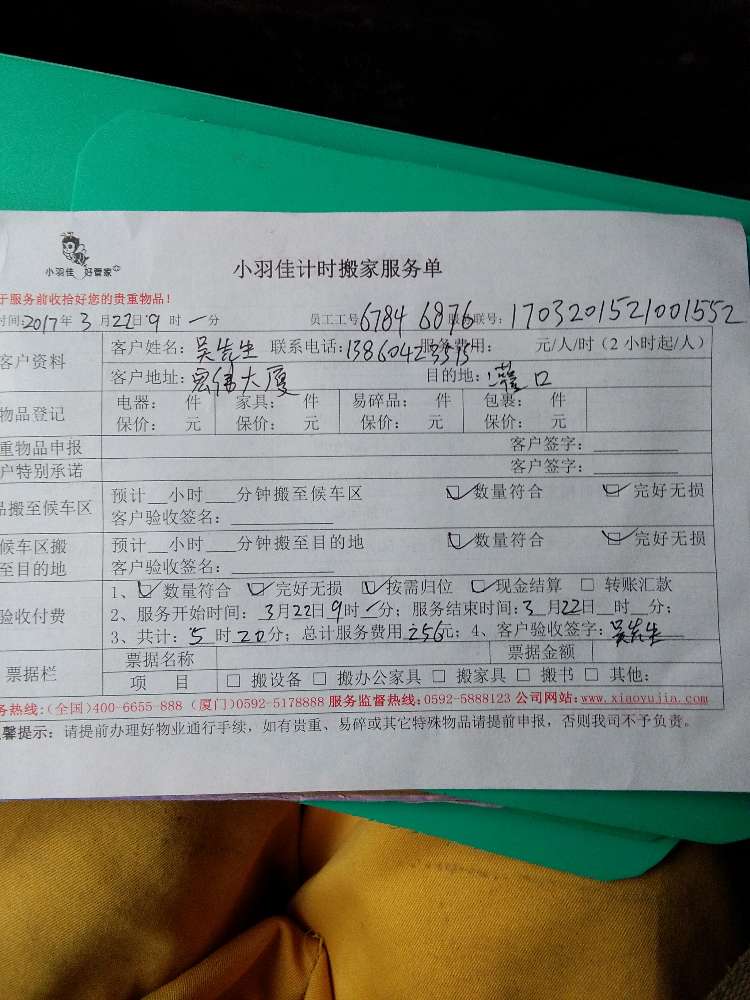 小羽佳 好管家
小羽佳计时搬家服务单
于服务前收拾好您的贵重物品！
时间:2017年3月22日9时一分 员工工号6784 6876 联号:1703201521001552
客户资料 客户姓名:吴先生 联系电话:13860423515 服务费用: 元/人/时(2小时起/人)
客户地址:宏伟大厦 目的地:灌口
物品登记 电器: 件 家具: 件 易碎品: 件 包裹: 件
保价: 元 保价: 元 保价: 元 保价: 元
重物品申报 客户签字:
户特别承诺 客户签字:
品搬至候车区 预计__小时___分钟搬至候车区 ☑数量符合 ☑完好无损
客户验收签名:
候车区搬至目的地 预计__小时___分钟搬至目的地 ☑数量符合 ☑完好无损
客户验收签名:
验收付费 1、☑数量符合 ☑完好无损 ☑按需归位 ☑现金结算 □转账汇款
2、服务开始时间:3月22日9时一分; 服务结束时间:3月22日__时__分;
3、共计:5时20分; 总计服务费用256元; 4、客户验收签字:吴先生
票据栏 票据名称 票据金额
项 目 □搬设备 □搬办公家具 □搬家具 □搬书 □其他:
务热线:(全国)400-6655-888 (厦门)0592-5178888 服务监督热线:0592-5888123 公司网站:www.xiaoyujia.com
馨提示: 请提前办理好物业通行手续，如有贵重、易碎或其它特殊物品请提前申报，否则我司不予负责。